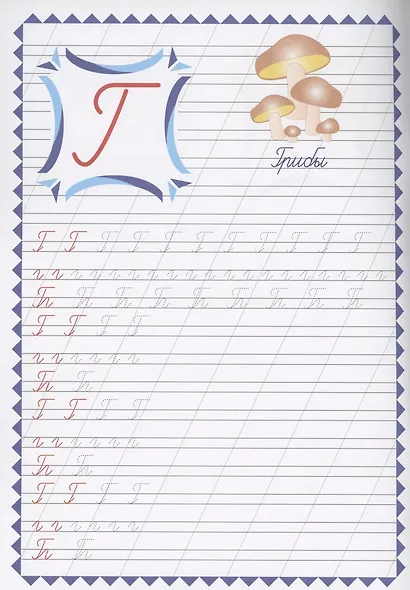 Г
Грибы
Г Г Г Г Г Г Г Г Г Г Г
г г г г г г г г г г г г г г г г г г г г г г г
Гг Гг Гг Гг Гг Гг Гг Гг Гг
Г Г Г Г
г г г г г г
Гг Гг
Г Г Г Г
г г г г г г
Гг Гг
Г Г Г Г
г г г г г г
Гг Гг